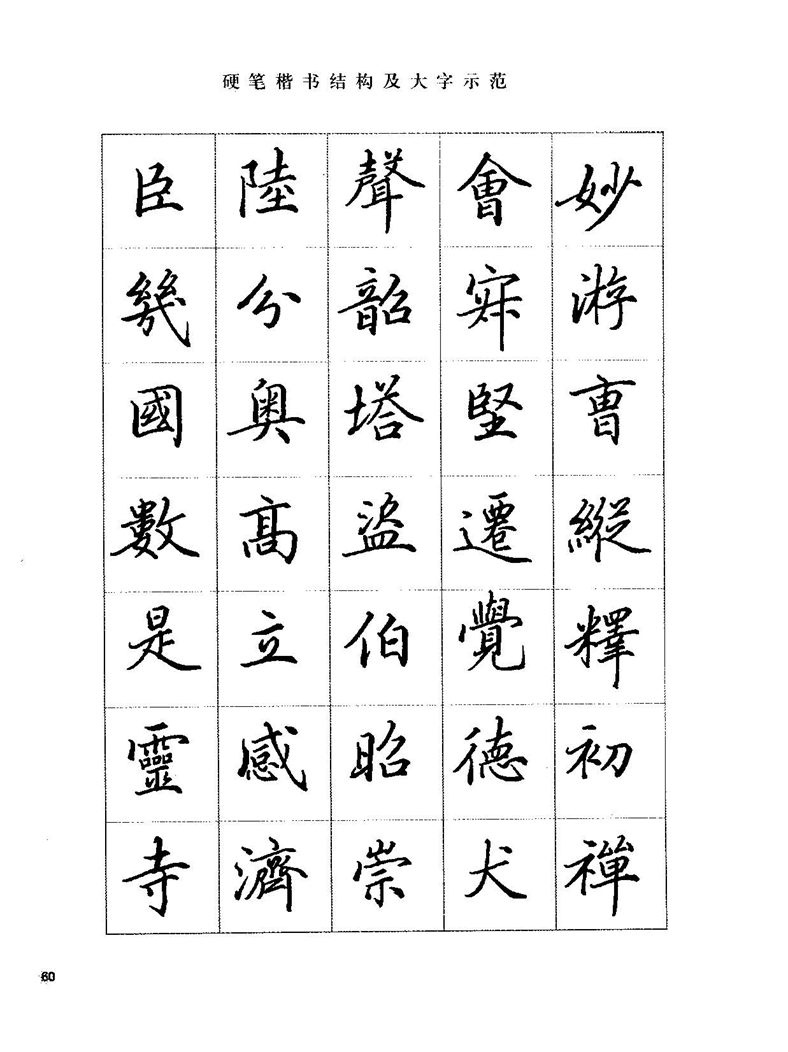 硬笔楷书结构及大字示范
臣陸聲會妙
幾分韶游
國奥塔堅曺
數髙盜遷縱
是立伯覺釋
靈感昭德初
寺濟崇犬禪
60